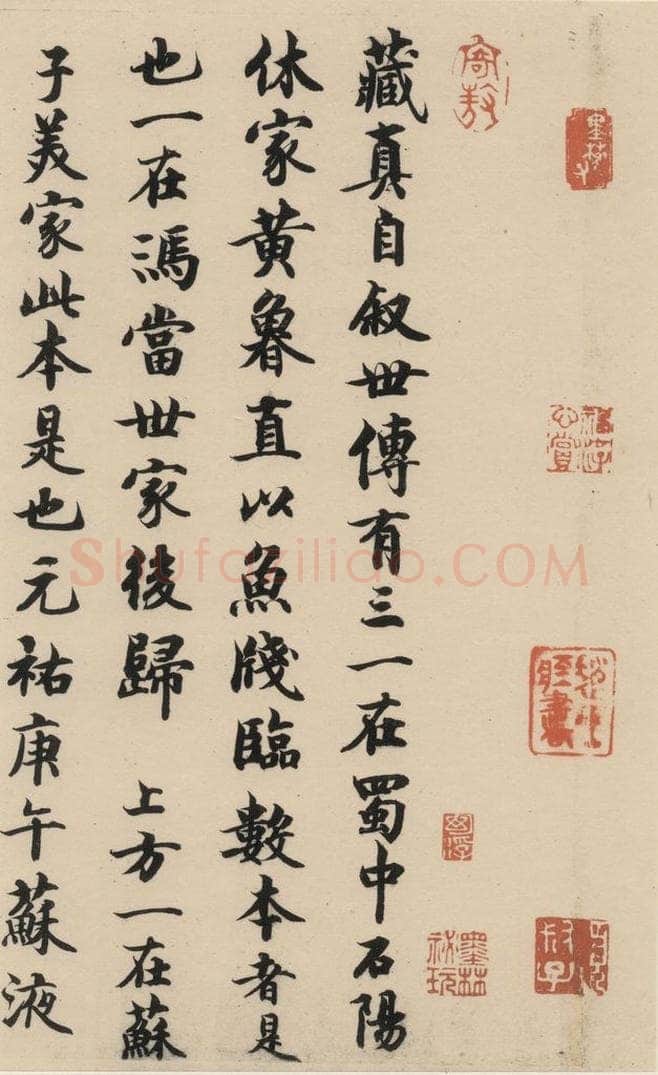 藏真自叙世傳有三一在蜀中石陽
休家黄魯直以魚牋臨數本者是
也一在馮當世家後歸 上方一在蘇
子美家此本是也元祐庚午蘇液
墨林祕玩
Shufaziliao.COM